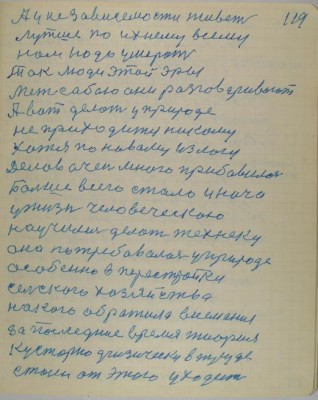 119
А и не зависемости живет
лутше по ихнему всему
нам надо умерать
Так люди этой эры
Меж сабою они разговаривают
А вот делат у природе
не приходит никому
Хотя по новаму излогу
Делов очен много прибавился
Больше всего стало и нача
у жизн человеческаю
научился делат технеку
она потребавалая у природе
особенно в перестройки
селского хозяйства
на кого обратила внемения
За последние время теория
Кусторно физически в труде
стали от этого уходит